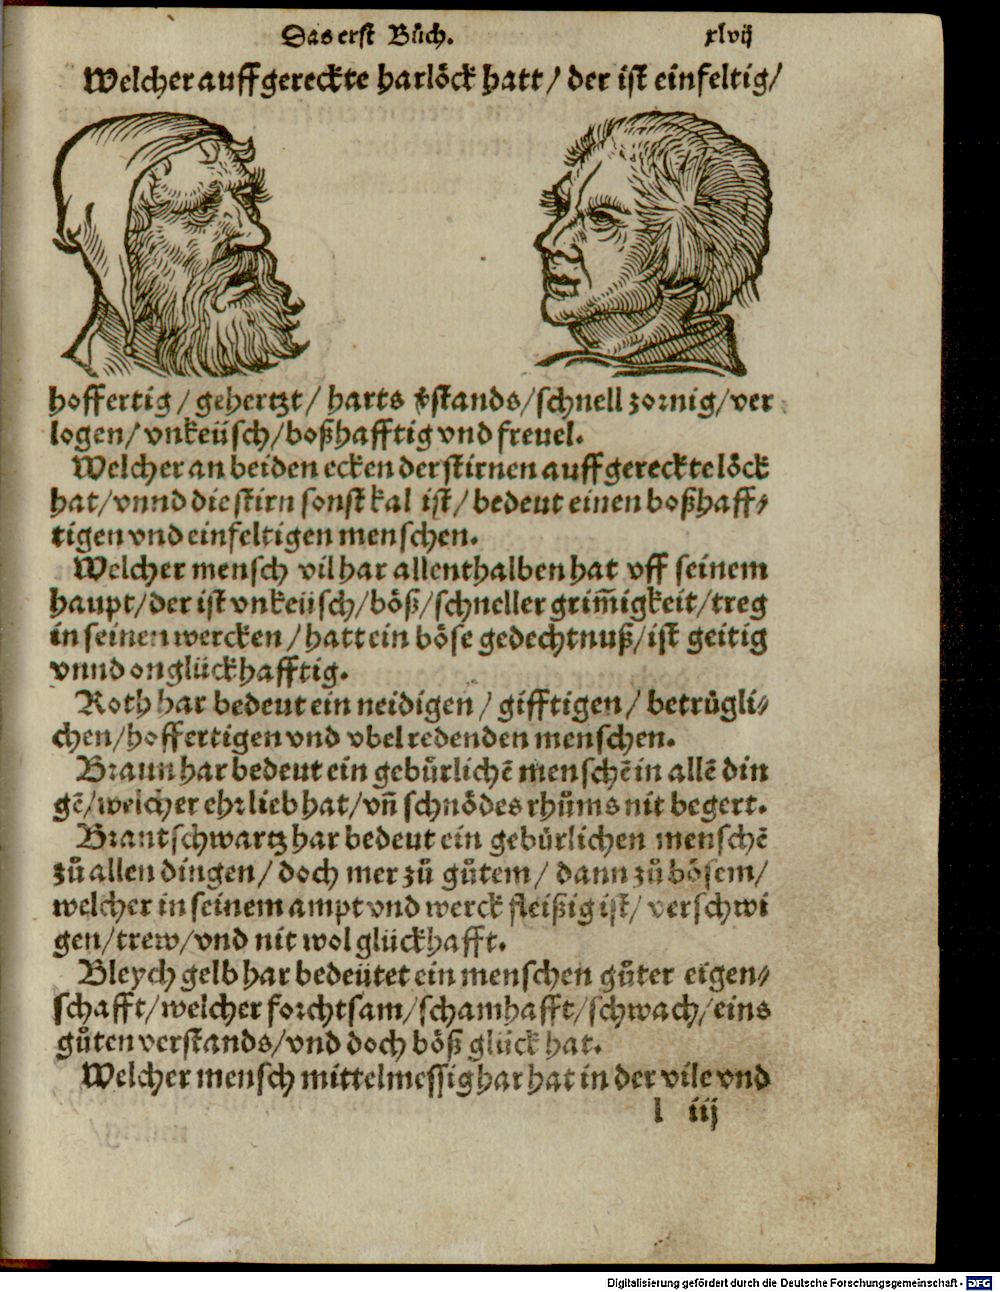 Das erst Bůch. xlvij
Welcher auffgereckte harlöck hatt/ der ist einfeltig/
hoffertig/ gehertzt/ harts vstands/ schnell zornig/ ver
logen/ vnkeüsch/ boßhafftig vnd freuel.
Welcher an beiden ecken der stirnen auffgereckte löck
hat/ vnnd die stirn sonst kal ist/ bedeut einen boßhaff⸗
tigen vnd einfeltigen menschen.
Welcher mensch vil har allenthalben hat vff seinem
haupt/ der ist vnkeüsch/ böß/ schneller grim̄igkeit/ treg
in seinen wercken/ hatt ein böse gedechtnuß/ ist geitig
vnnd onglückhafftig.
Roth har bedeut ein neidigen/ gifftigen/ betrůgli⸗
chen/ hoffertigen vnd vbel redenden menschen.
Braun har bedeut ein gebürlichē menschē in allē din
gē/ welcher ehr lieb hat/ vn̄ schnödes rhůms nit begert.
Brantschwartz har bedeut ein gebürlichen menschē
zů allen dingen/ doch mer zů gůtem/ dann zů bösem/
welcher in seinem ampt vnd werck fleißig ist/ verschwi
gen/ trew/ vnd nit wol glückhafft.
Bleych gelb har bedeütet ein menschen gůter eigen⸗
schafft/ welcher forchtsam/ schamhafft/ schwach/ eins
gůten verstands/ vnd doch böß glück hat.
Welcher mensch mittelmessig har hat in der vile vnd
l iij
Digitalisierung gefördert durch die Deutsche Forschungsgemeinschaft - DFG